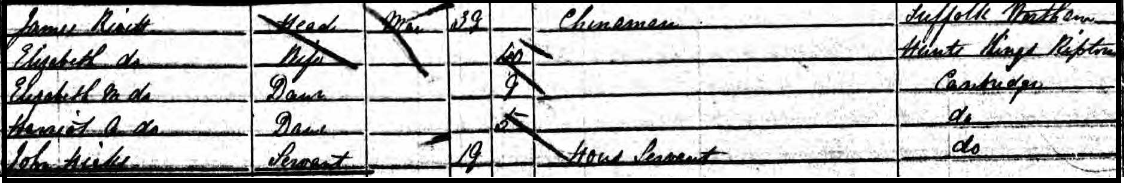 James Head Mar 39 Chinaman Suffolk
Elizabeth do Wife 40 Hunts Kings Ripton
Elizabeth M do Daur 9 Cambridge
Harriot A do Daur 5 do
John Hicks Servant 19 Hous Servant do